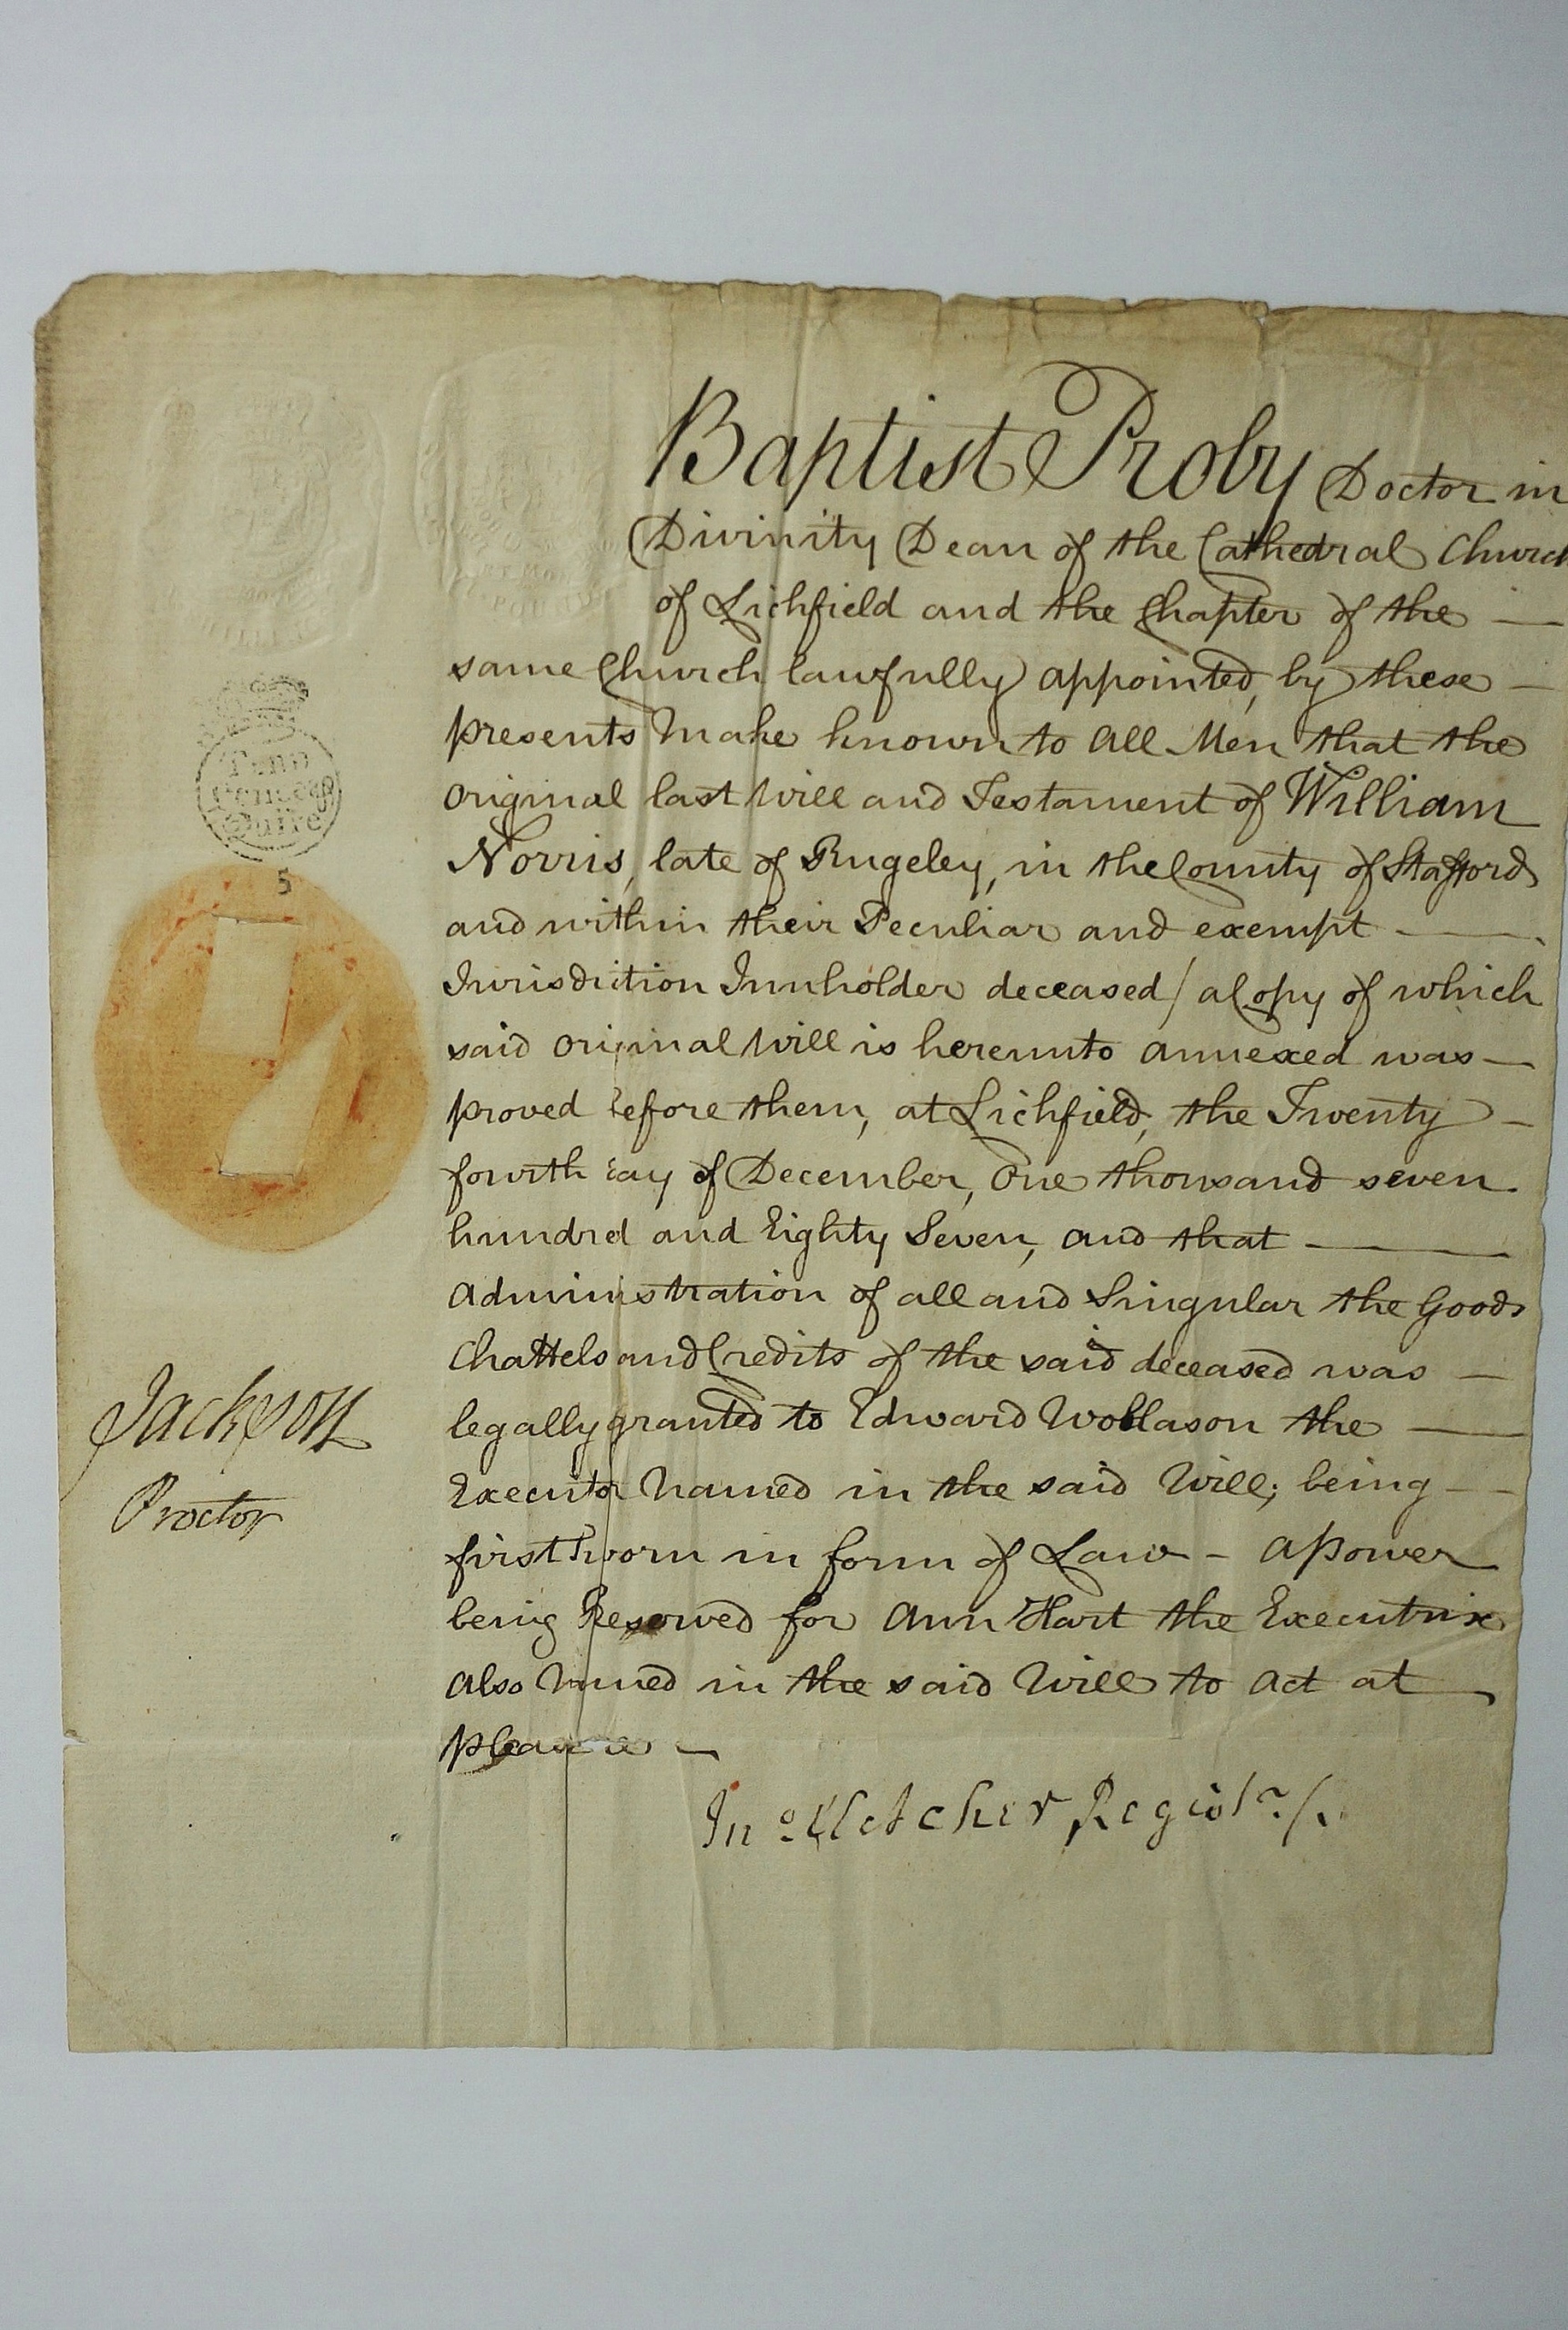 Baptist Proby Doctor in
Divinity Dean of the Cathedral Church
of Lichfield and the Chapter of the —
same Church lawfully appointed, by these —
presents make known to all Men that the
original last Will and Testament of William
Norris, late of Rugeley, in the County of Stafford
and within their Peculiar and exempt —
Jurisdiction Innholder deceased / a Copy of which
said original Will is hereunto annexed was —
proved before them, at Lichfield, the Twenty —
fourth day of December, One thousand seven
hundred and Eighty Seven, and that —
Administration of all and Singular the Goods
Chattels and Credits of the said deceased was —
legally granted to Edward Wollason the —
Executor named in the said Will; being —
first sworn in form of Law — a power
being Reserved for Ann Hart the Executrix
also named in the said Will to act at
pleasure —
Jno Fletcher Registr /.
Jackson
Proctor
Quire
5